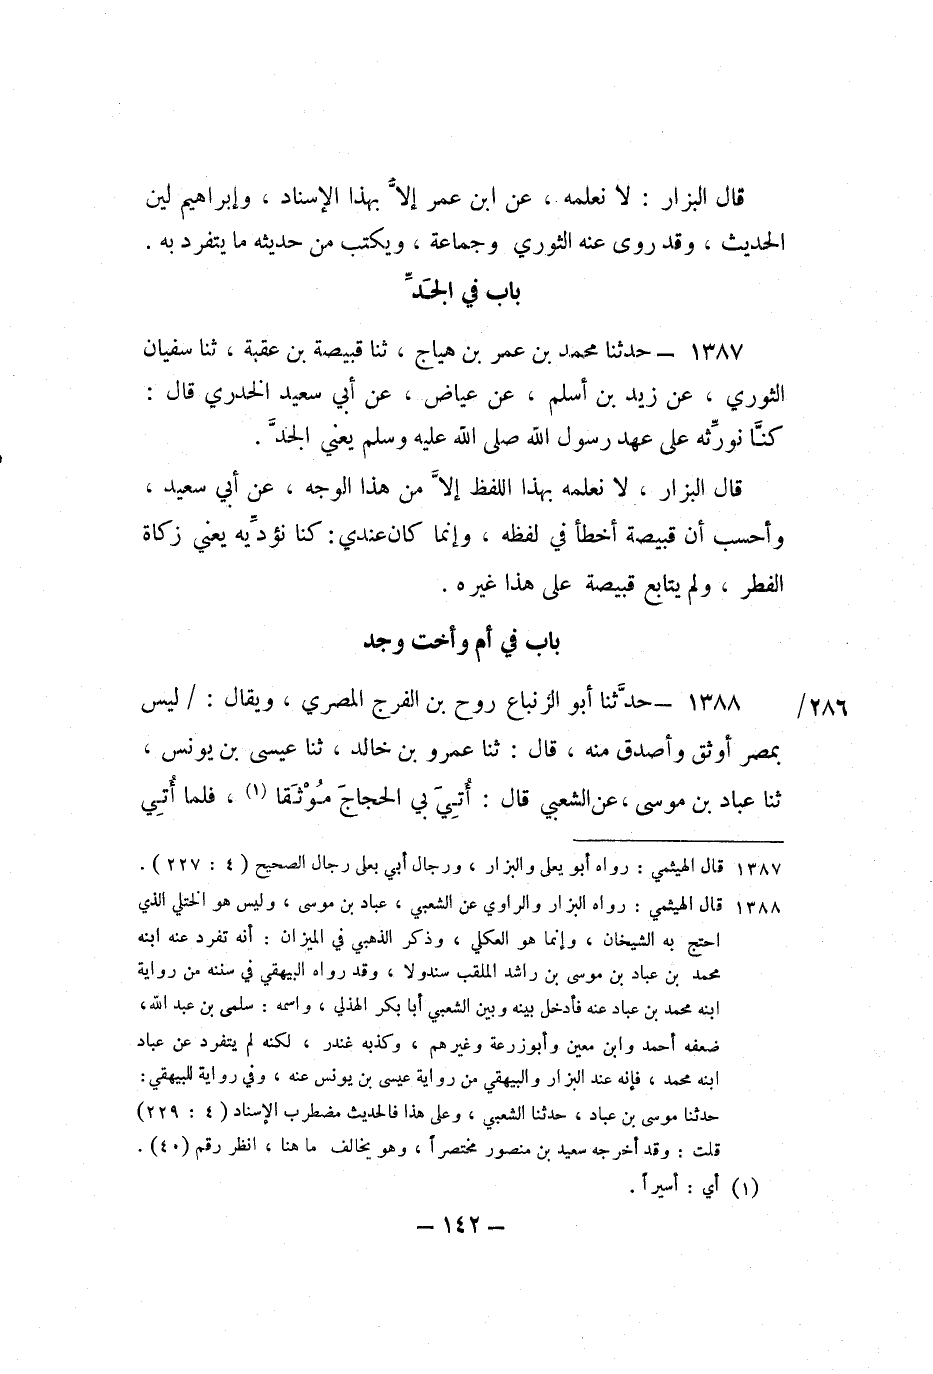 قال البزار : لا نعلمه ، عن ابن عمر إلاَّ بهذا الإسناد ، وإبراهيم لين
الحديث ، وقد روى عنه الثوري وجماعة ، ويكتب من حديثه ما يتفرد به .
باب في الجَدِّ
١٣٨٧ – حدثنا محمد بن عمر بن هياج ، ثنا قبيصة بن عقبة ، ثنا سفيان
الثوري ، عن زيد بن أسلم ، عن عياض ، عن أبي سعيد الخدري قال :
كنَّا نورِّثه على عهد رسول الله صلى الله عليه وسلم يعني الجَدَّ .
قال البزار ، لا نعلمه بهذا اللفظ إلاَّ من هذا الوجه ، عن أبي سعيد ،
وأحسب أن قبيصة أخطأ في لفظه ، وإنما كان عندي : كنا نؤدِّيه يعني زكاة
الفطر ، ولم يتابع قبيصة على هذا غيره .
باب في أم وأخت وجد
٢٨٦/ ١٣٨٨ – حدَّثنا أبو الزنباع روح بن الفرج المصري ، ويقال : / ليس
بمصر أوثق وأصدق منه ، قال : ثنا عمرو بن خالد ، ثنا عيسى بن يونس ،
ثنا عباد بن موسى ، عن الشعبي قال : أُتِيَ بي الحجاجَ مُوْثَقا (١) ، فلما أُتِي
١٣٨٧ قال الهيثمي : رواه أبو يعلى والبزار ، ورجال أبي يعلى رجال الصحيح ( ٤ : ٢٢٧ ) .
١٣٨٨ قال الهيثمي : رواه البزار والراوي عن الشعبي ، عباد بن موسى ، وليس هو الختلي الذي
احتج به الشيخان ، وإنما هو العكلي ، وذكر الذهبي في الميزان : أنه تفرد عنه ابنه
محمد بن عباد بن موسى بن راشد الملقب سندولا ، وقد رواه البيهقي في سننه من رواية
ابنه محمد بن عباد عنه فأدخل بينه وبين الشعبي أبا بكر الهذلي ، واسمه : سلمى بن عبد الله ،
ضعفه أحمد وابن معين وأبوزرعة وغيرهم ، وكذبه غندر ، لكنه لم يتفرد عن عباد
ابنه محمد ، فإنه عند البزار والبيهقي من رواية عيسى بن يونس عنه ، وفي رواية للبيهقي :
حدثنا موسى بن عباد ، حدثنا الشعبي ، وعلى هذا فالحديث مضطرب الإسناد ( ٤ : ٢٢٩ )
قلت : وقد أخرجه سعيد بن منصور مختصراً ، وهو يخالف ما هنا ، انظر رقم (٤٠) .
(١) أي : أسيراً .
– ١٤٢ –